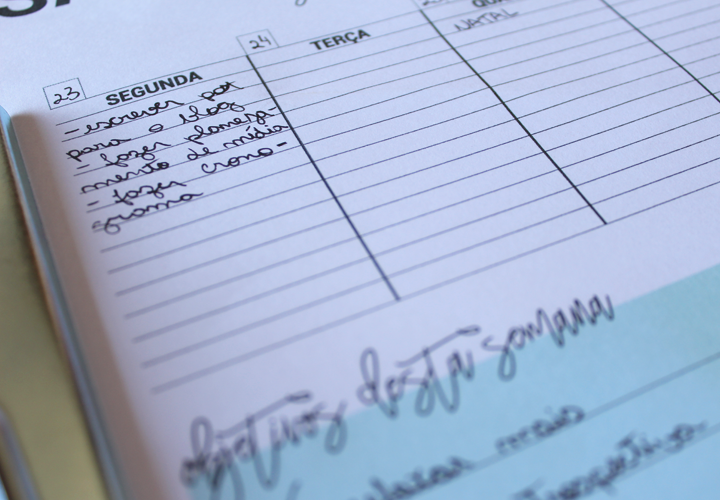 23 SEGUNDA 24 TERÇA
NATAL
- escrever post
para o blog
- fazer planeja-
mento de mídia
- fazer crono-
grama
objetivos desta semana
mais